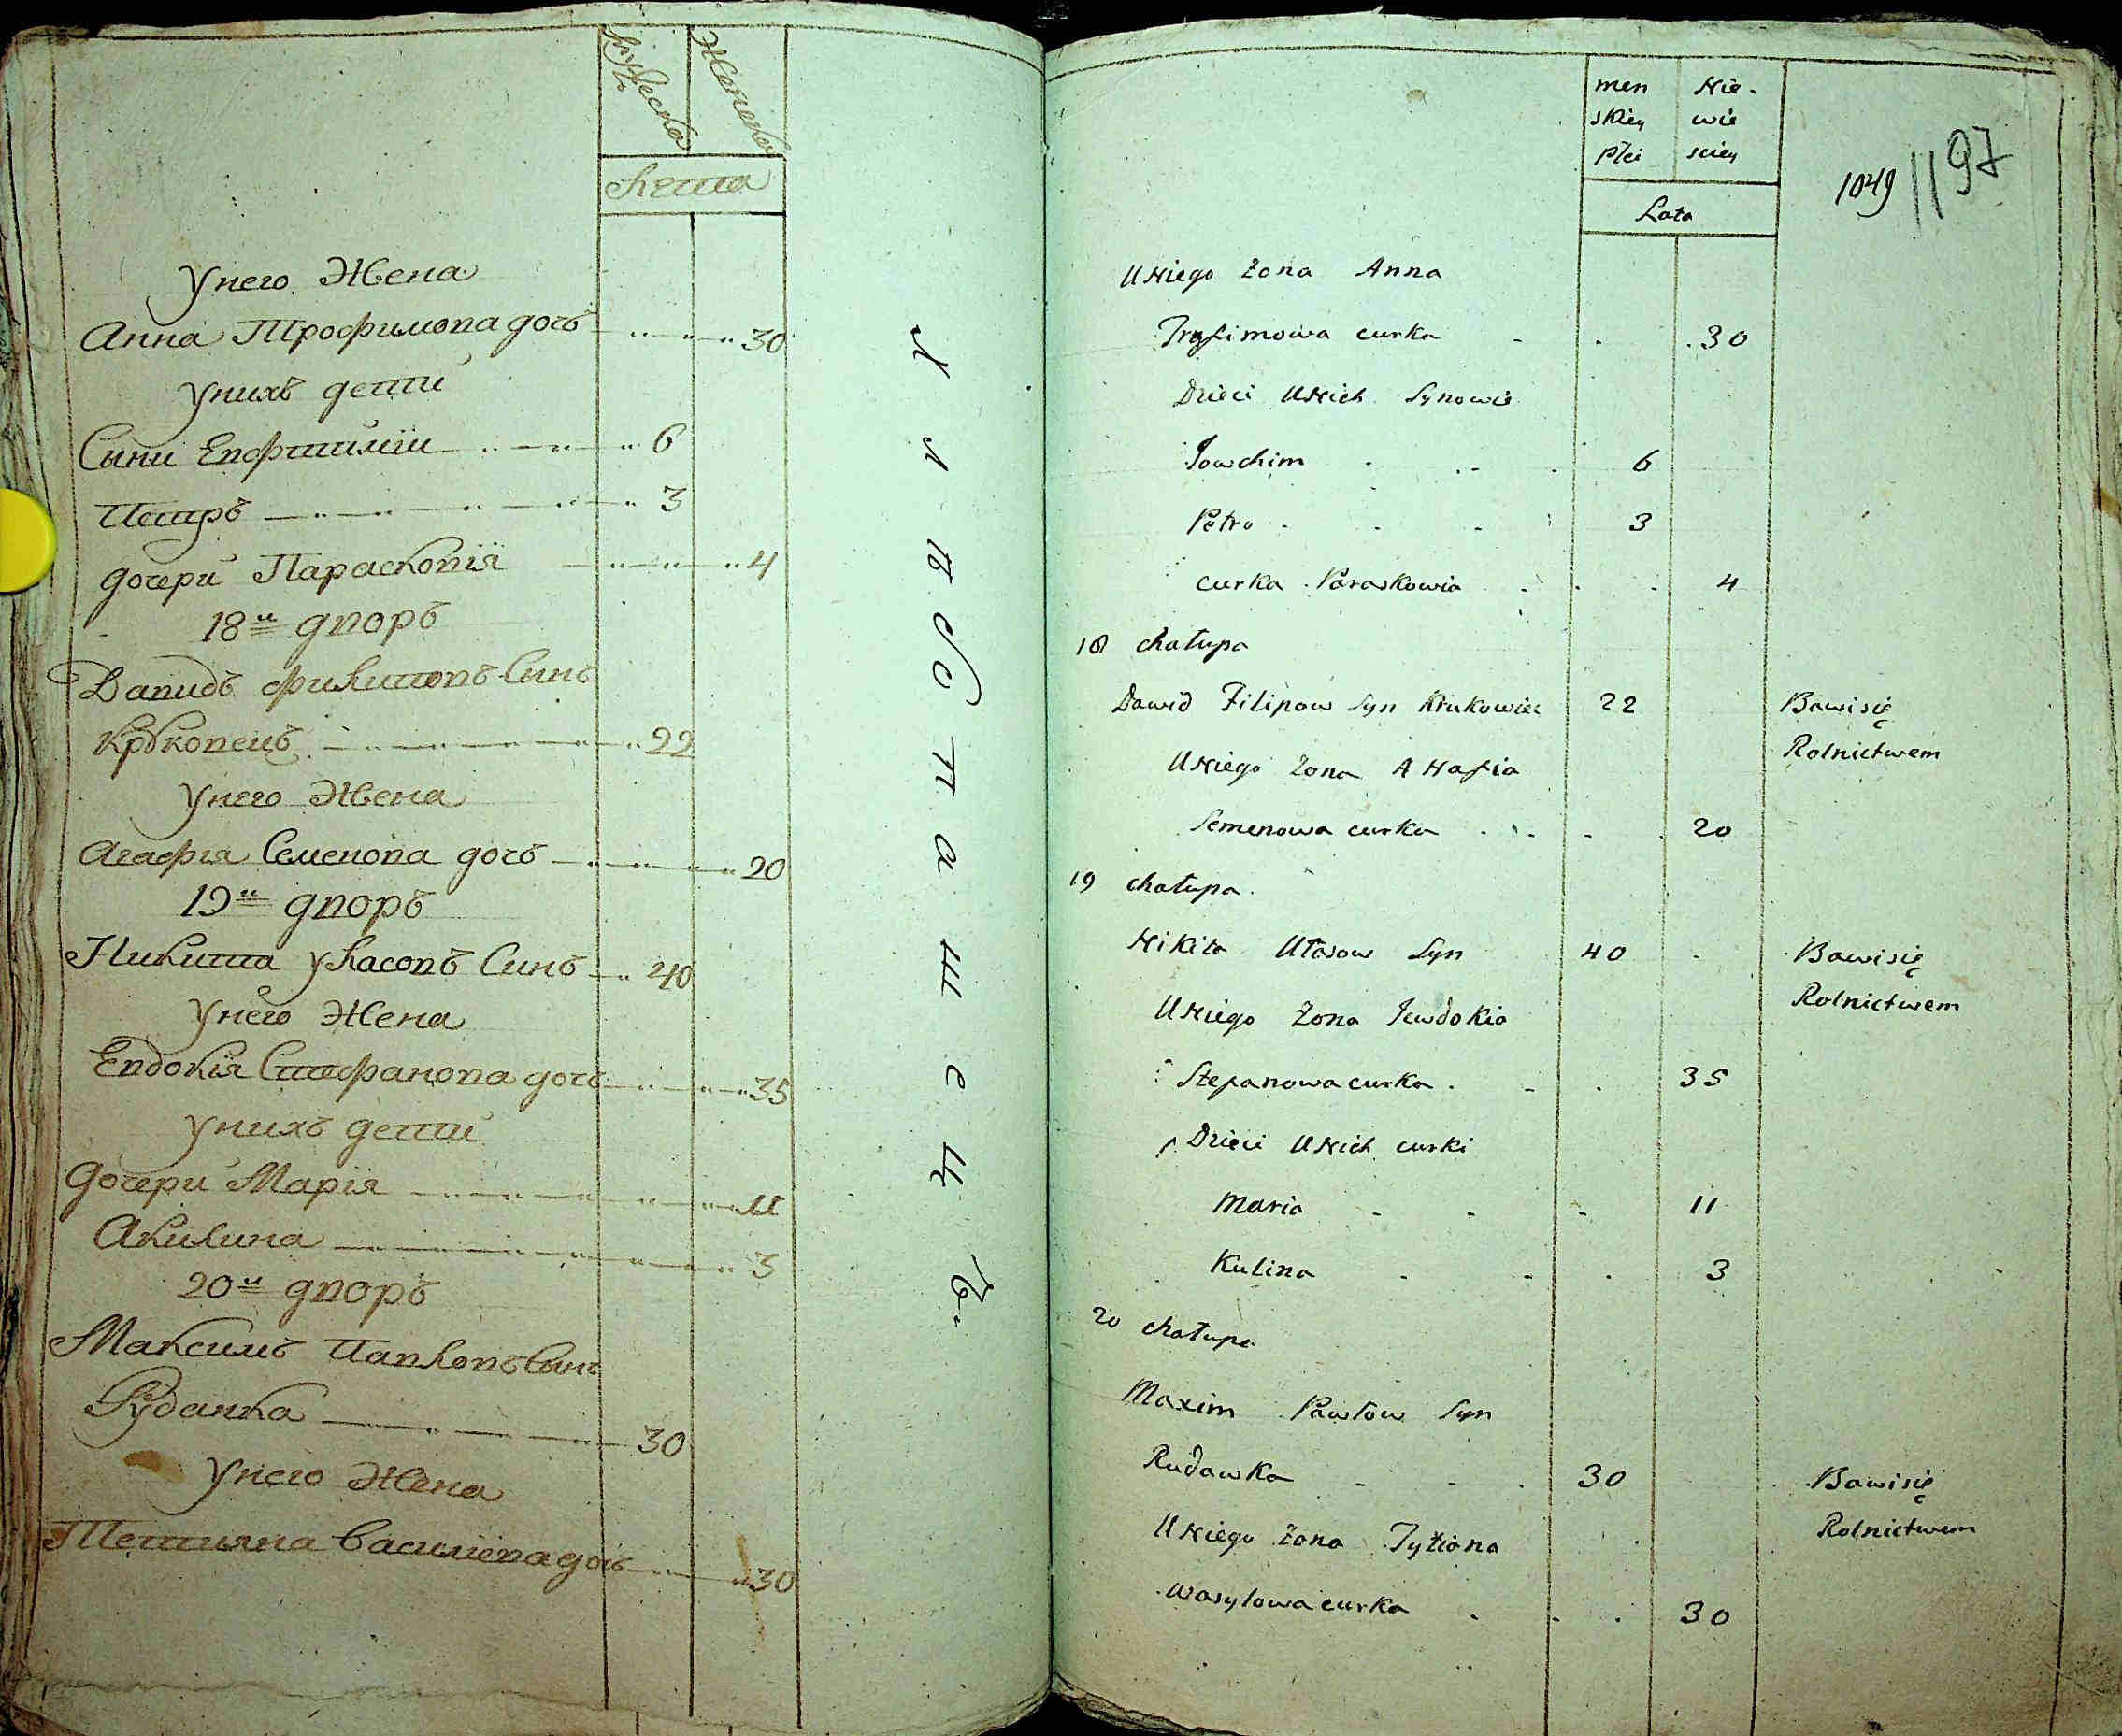 Мужеска
Женска
Лета
Унего Жена
Анна Трофимова дочь 30
Унихъ дети
Сини Евфтимїи 6
Петръ 3
дочери Парасковїя 4
18й дворъ
Давидъ Филиповъ Синъ
Круковецъ 22
Унего Жена
Агафия Семенова дочь 20
19й дворъ
Никита Уласовъ Синъ 40
Унего Жена
Евдокїя Стефанова дочь 35
Унихъ дети
дочери Марїя 11
Акилина 3
20й дворъ
Максимъ Павловъ Синъ
Рудавка 30
Унего Жена
Тетияна Василїева дочь 30
men Nie-
skiey wie
płci sciey
Lata
1049
97
U Niego Żona Anna
Trofimowa curka 30
Dzieci U Nich Synowie
Jowchim 6
Petro 3
curka Paraskowia 4
18 chałupa
Dawid Filipow Syn Krukowiec 22 Bawi się
Rolnictwem
U Niego Żona AHafia
Semenowa curka 20
19 chałupa
Nikita Ułasow Syn 40 Bawi się
Rolnictwem
U Niego Żona Jewdokia
Stepanowa curka 35
Dzieci U Nich curki
Maria 11
Kulina 3
20 chałupa
Maxim Pawłow Syn
Rudawka 30 Bawi się
Rolnictwem
U Niego Żona Tytiana
Wasylowa curka 30